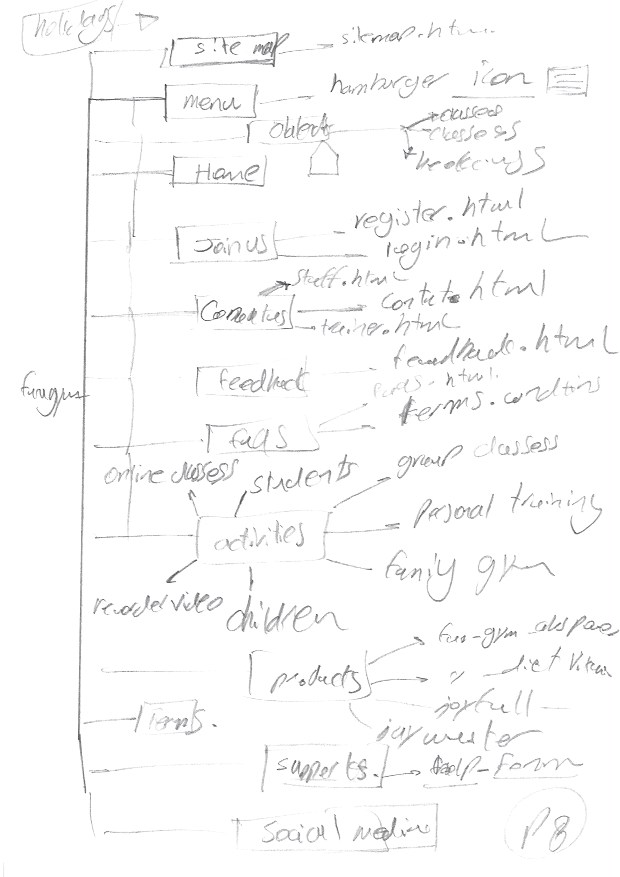 holidays
site map sitemap.html
menu hamburger icon
objects classes
classess
bookings
Home
Join us register.html
login.html
staff.html
Contactus html
trainer.html
feedback feedback.html
fungym
faqs terms.condtins
online classess students group classess
activities Personal training
family gym
recorder video children
products fun-gym
" diet
joyfull
Terms.
supports. help-form
Social media
P8